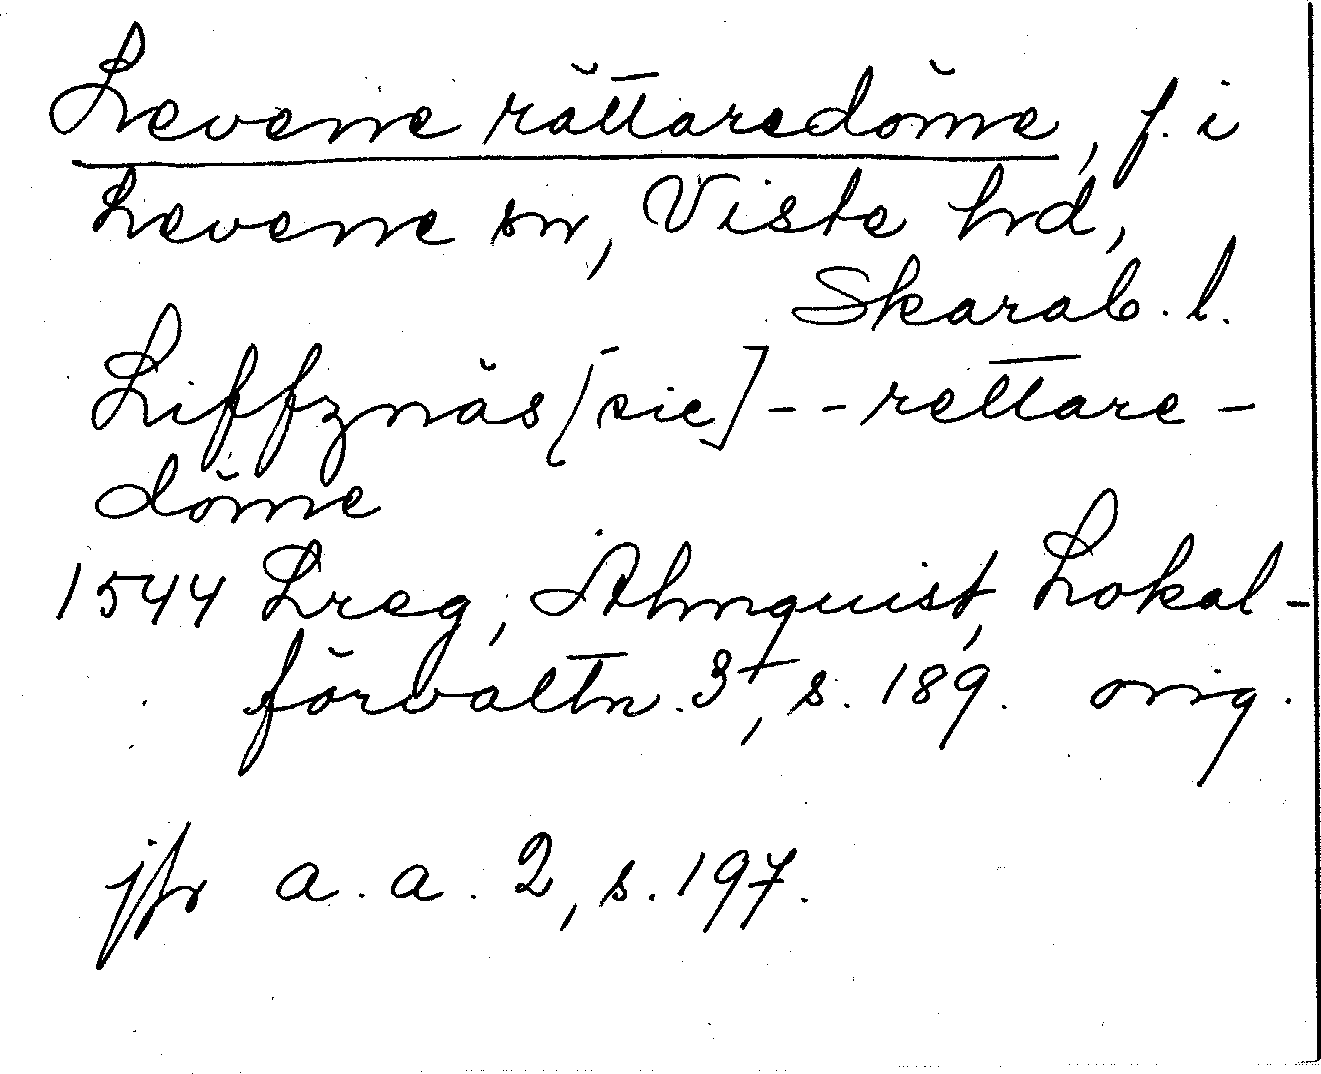 Levene rättaredöme, f. i
Levene sn, Viste hrd,
Skarab. l.
Liffznäs [sic] - - rettare-
döme
1544 Lreg, Almquist, Lokal-
förvaltn. 3†, s. 189. orig.
jfr a. a. 2, s. 197.